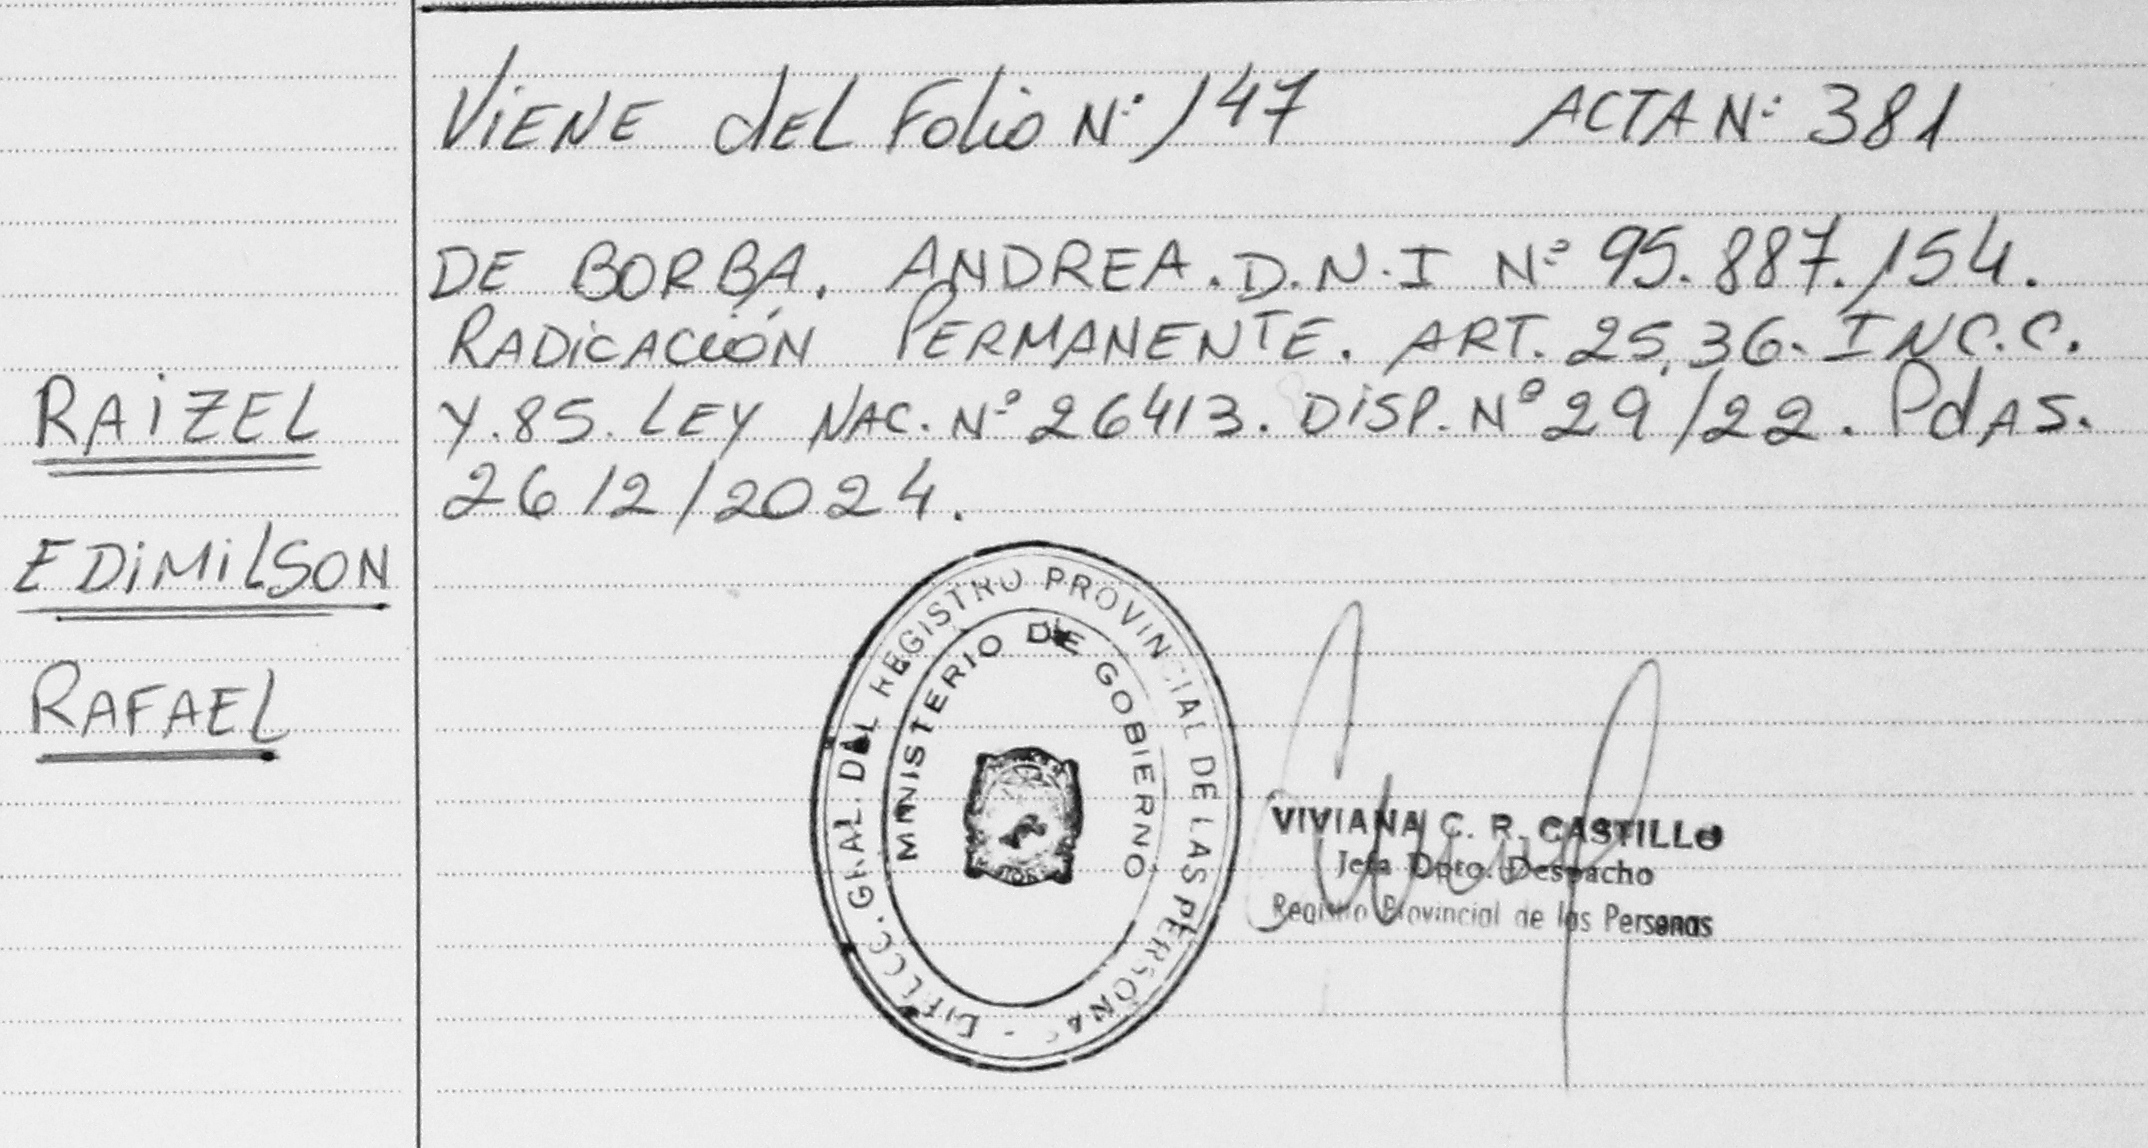 ViENE dEL Folio N: 147 ACTA N: 381
DE BORBA. ANDREA. D.N.I Nº 95.887.154.
RADiCACiÓN PERMANENTE. ART. 25,36. INC.C.
Y.85. LEY NAC. Nº 26413. DiSP. Nº 29/22. PdAS.
26/2/2024.
RAiZEL
EDiMiLSON
RAFAEL
DIRECC. GRAL. DEL REGISTRO PROVINCIAL DE LAS PERSONAS -
MINISTERIO DE GOBIERNO
VIVIANA C. R. CASTILLO
Jefa Dpto. Despacho
Registro Provincial de las Personas